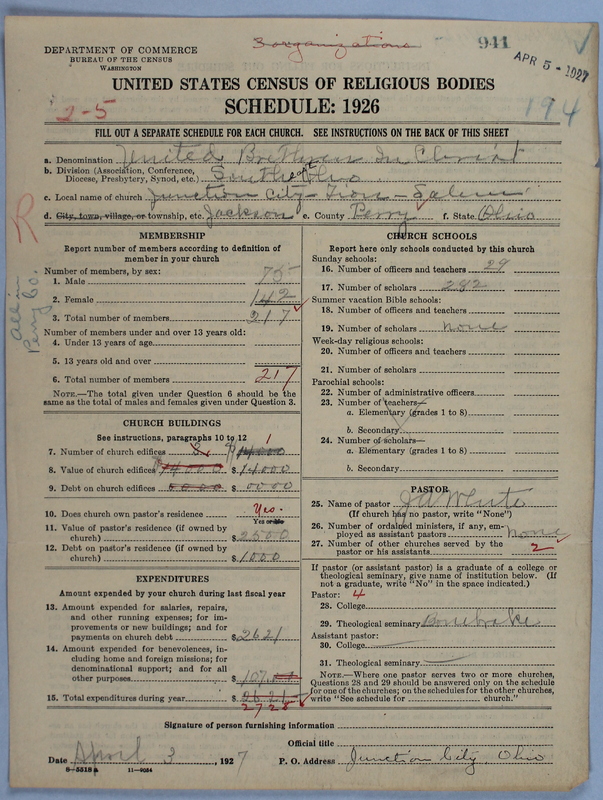 3 organizations
941
APR 5 - 1927
DEPARTMENT OF COMMERCE
BUREAU OF THE CENSUS
WASHINGTON
UNITED STATES CENSUS OF RELIGIOUS BODIES
2-5
SCHEDULE: 1926
194
FILL OUT A SEPARATE SCHEDULE FOR EACH CHURCH. SEE INSTRUCTIONS ON THE BACK OF THIS SHEET
a. Denomination United Brethren In Christ
b. Division (Association, Conference, Diocese, Presbytery, Synod, etc.) South East Ohio
c. Local name of church Junction City - Zion - Salem
d. City, town, village, or township, etc. Jackson e. County Perry f. State Ohio
R
All in Perry Co.
MEMBERSHIP
Report number of members according to definition of
member in your church
Number of members, by sex:
1. Male 75
2. Female 142
3. Total number of members 217
Number of members under and over 13 years old:
4. Under 13 years of age
5. 13 years old and over
6. Total number of members 217
NOTE.—The total given under Question 6 should be the
same as the total of males and females given under Question 3.
CHURCH BUILDINGS
See instructions, paragraphs 10 to 12
7. Number of church edifices 3
8. Value of church edifices $14000 $14000
9. Debt on church edifices 0000 $0000
10. Does church own pastor's residence Yes
Yes or No
11. Value of pastor's residence (if owned by
church) $2500
12. Debt on pastor's residence (if owned by
church) $1000
EXPENDITURES
Amount expended by your church during last fiscal year
13. Amount expended for salaries, repairs,
and other running expenses; for im-
provements or new buildings; and for
payments on church debt $2621
14. Amount expended for benevolences,
including home and foreign missions; for
denominational support; and for all
other purposes $107
15. Total expenditures during year $2621
2728
CHURCH SCHOOLS
Report here only schools conducted by this church
Sunday schools:
16. Number of officers and teachers 29
17. Number of scholars 282
Summer vacation Bible schools:
18. Number of officers and teachers
19. Number of scholars none
Week-day religious schools:
20. Number of officers and teachers
21. Number of scholars
Parochial schools:
22. Number of administrative officers
23. Number of teachers—
a. Elementary (grades 1 to 8)
b. Secondary
24. Number of scholars—
a. Elementary (grades 1 to 8)
b. Secondary
PASTOR
25. Name of pastor J A White
(If church has no pastor, write "None")
26. Number of ordained ministers, if any, em-
ployed as assistant pastors none
27. Number of other churches served by the
pastor or his assistants 2
If pastor (or assistant pastor) is a graduate of a college or
theological seminary, give name of institution below. (If
not a graduate, write "No" in the space indicated.)
Pastor: 4
28. College
29. Theological seminary Bonebrake
Assistant pastor:
30. College
31. Theological seminary
NOTE.—Where one pastor serves two or more churches,
Questions 28 and 29 should be answered only on the schedule
for one of the churches; on the schedules for the other churches,
write "See schedule for church."
Signature of person furnishing information
Official title
Date April 3, 1927 P. O. Address Junction City, Ohio
8-5518a 11-9054